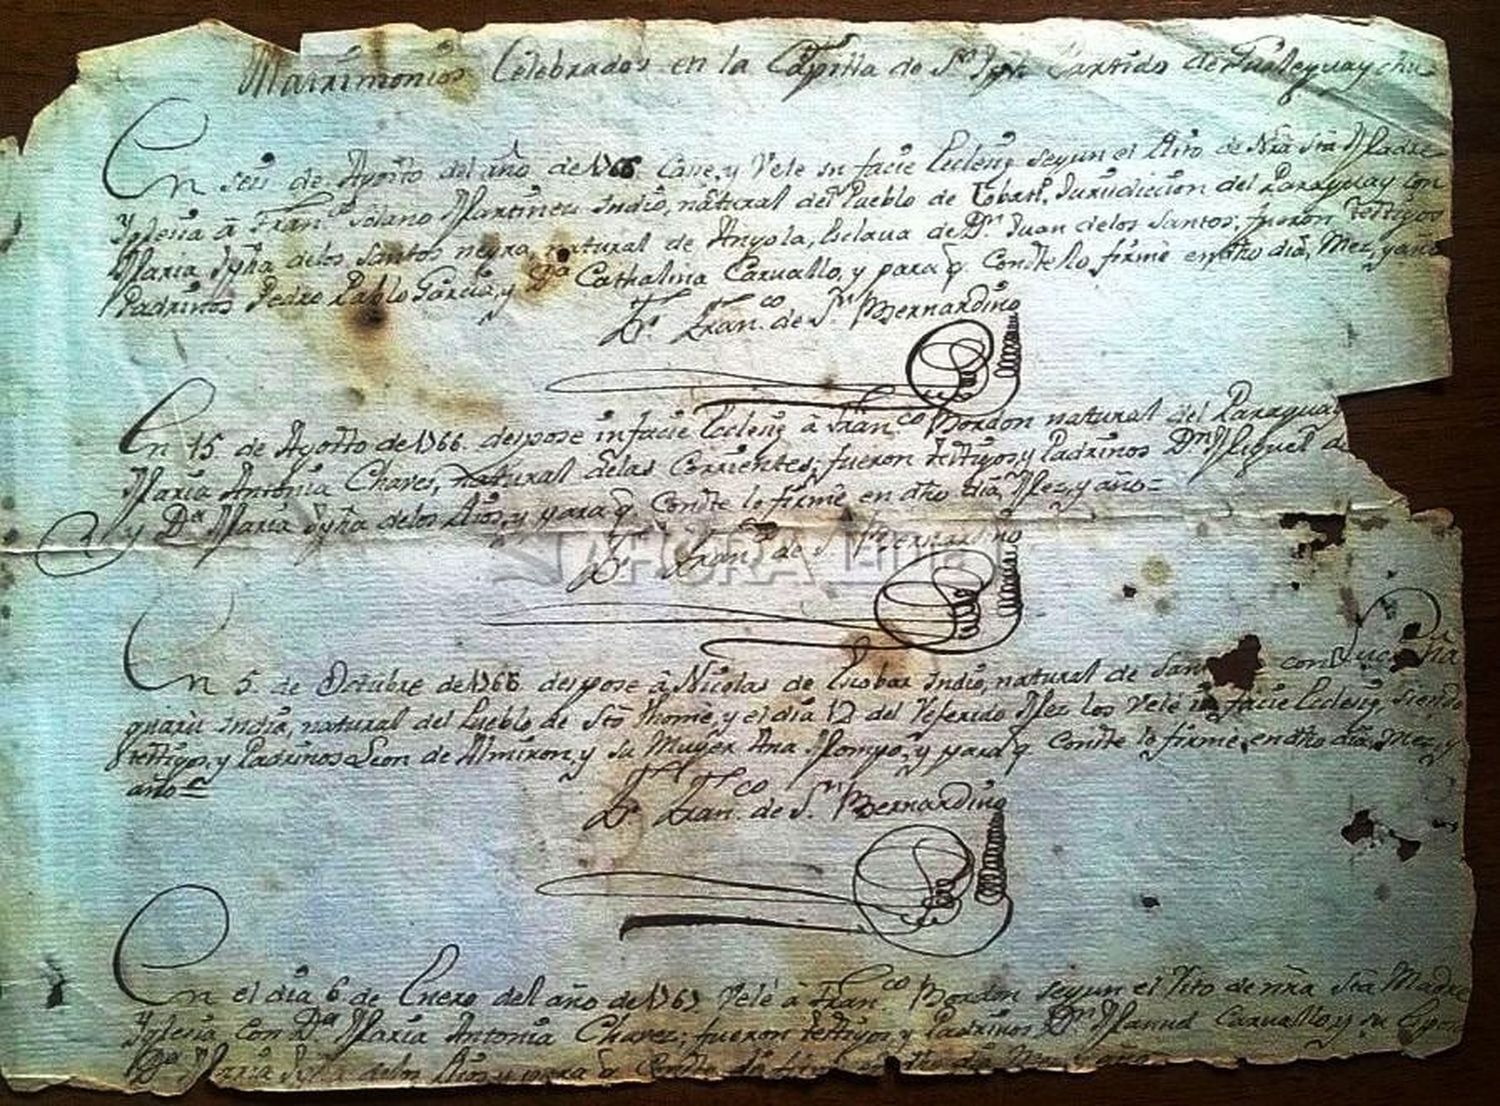 Matrimonios Celebrados en la Capilla de Sn Jph Partido de Gualeguaychu
En seis de Agosto del año de 1766 Casè, y Velè in facie Eclesiȩ segun el Rito de Nrã Stã Madre
Yglesia à Franco Solano Martinez Indio, natural del Pueblo de Jurisdiccion del Paraguay con
Maria Jpha delos Santos negra, natural de Angola, Esclava de Dn Juan delos Santos; fueron testigos
Padrinos Pedro Pablo Garcia, y Da Cathalina Carvallo, y para q. Conste lo firmè en dho dia, Mez, y año
Fr. Franco de Sn Bernardino
En 15 de Agosto de 1766. despose in facie Eclesiȩ à Franco Bordon natural del Paraguay
Maria Antonia Chaves, natural delas Corrientes; fueron testigos, y Padrinos Dn Miguel de
y Da Maria Jpha delos Rios, y para q. Conste lo firmè en dho dia, Mez, y año=
Fr. Franco de Sn Bernardino
AHORA
En 5 de Octubre de 1766 despose à Nicolas de Escobar Indio, natural de San con
Indiã, natural del Pueblo de Sto Thomè, y el dia 12 del referido Mez los Velè in facie Eclesiȩ, siendo
testigos, y Padrinos Leon de Almiron, y su Muger Ana y para q. Conste lo firmè, en dho dia, Mez, y
año=
Fr. Franco de Sn Bernardino
En el dia 6 de Enero del año de 1767 Velè à Franco Bordon segun el Rito de nrã Stã Madre
Yglesia, con Da Maria Antonia Chavez; fueron testigos y Padrinos Dn Manuel Carvallo, y su Espo
Da Maria Jpha delos Rios, y para q Conste lo firmè en dho dia Mez y año